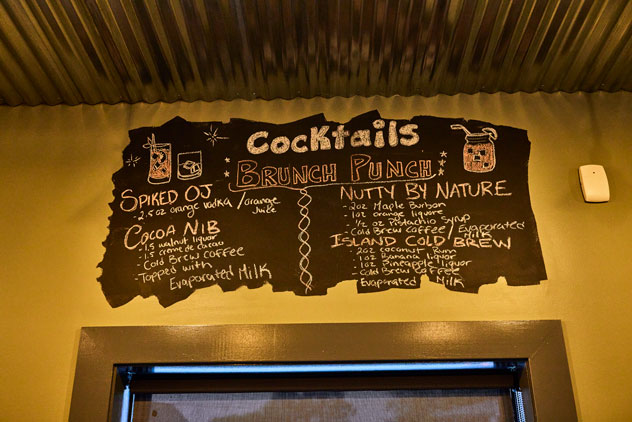 Cocktails
BRUNCH PUNCH
SPIKED OJ
- 2.5 oz orange vodka / orange
Juice
COCOA NIB
- 1.5 walnut liquor
- 1.5 creme de cacao
- Cold Brew coffee
- Topped with
Evaporated Milk
NUTTY BY NATURE
- 2oz Maple Burbon
- 1oz orange liquore
- 1/2 oz Pistachio syrup
- Cold Brew coffee / Evaporated
Milk
ISLAND COLD BREW
- 2oz coconut Rum
- 1oz Banana liquor
- 1oz Pineapple liquor
- Cold Brew coffee
Evaporated Milk